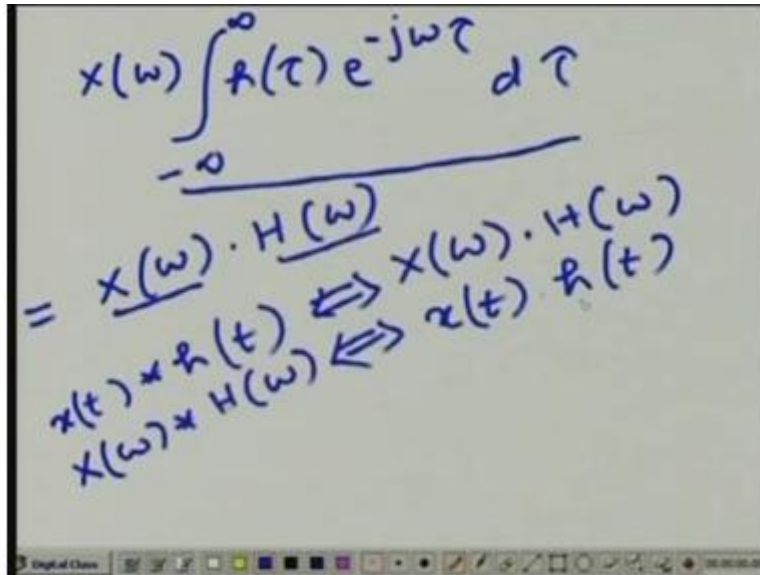 X(ω) ∫_{-∞}^{∞} h(τ) e^{-jωτ} dτ
= X(ω) · H(ω)
x(t) * h(t) ⇔ X(ω) · H(ω)
X(ω) * H(ω) ⇔ x(t) · h(t)
Digital Class